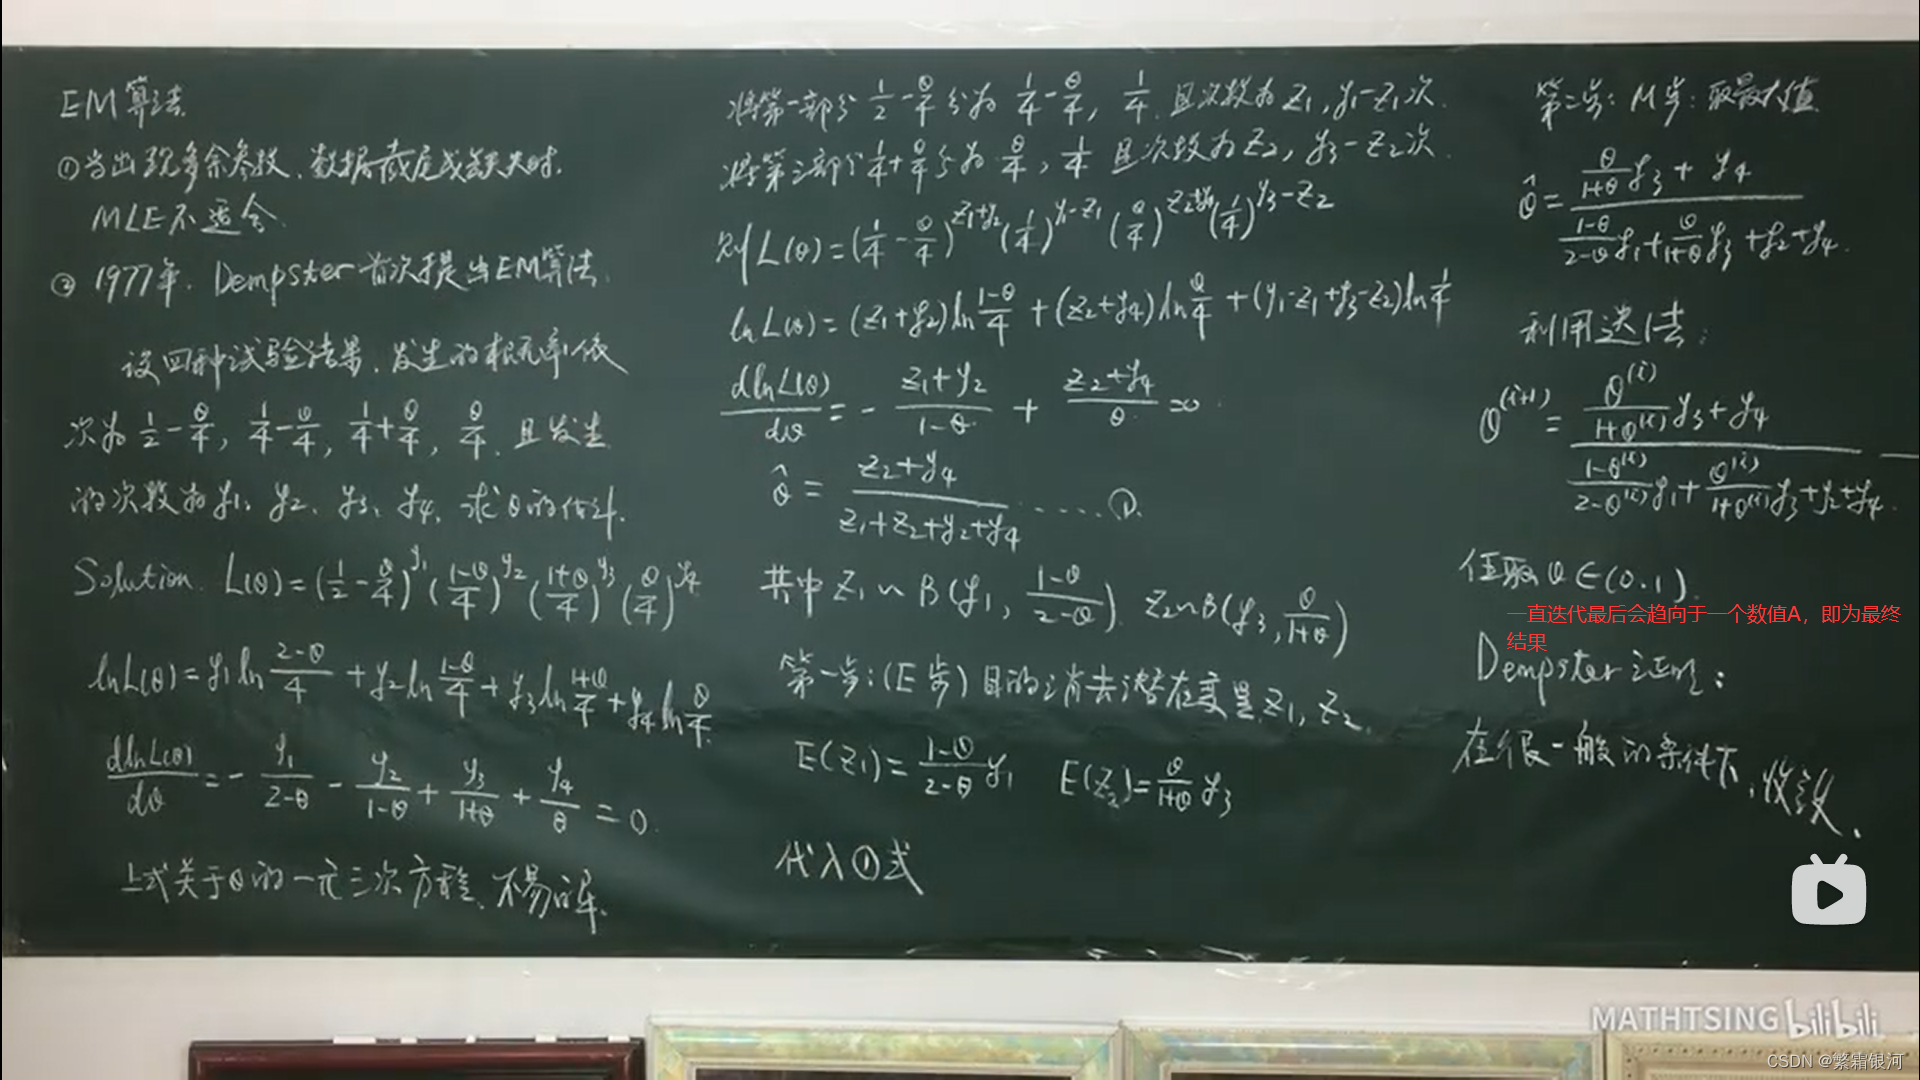 EM算法
①当出现多余参数、数据截尾或缺失时,
MLE不适合
② 1977年, Dempster首次提出EM算法.
设四种试验结果,发生的概率依
次为 1/2-θ/4, 1/4-θ/4, 1/4+θ/4, θ/4. 且发生
的次数为 y₁, y₂, y₃, y₄, 求θ的估计.
Solution. L(θ)=(1/2-θ/4)^y₁ ((1-θ)/4)^y₂ ((1+θ)/4)^y₃ (θ/4)^y₄
lnL(θ)=y₁ln (2-θ)/4 + y₂ln (1-θ)/4 + y₃ln (1+θ)/4 + y₄ln θ/4.
dlnL(θ)/dθ = - y₁/(2-θ) - y₂/(1-θ) + y₃/(1+θ) + y₄/θ = 0.
上式关于θ的一元三次方程、不易求解.
将第一部分 1/2-θ/4 分为 1/4-θ/4, 1/4. 且次数为 Z₁, y₁-Z₁次.
将第三部分 1/4+θ/4 分为 θ/4, 1/4 且次数为 Z₂, y₃-Z₂次.
则L(θ)=(1/4-θ/4)^(Z₁+y₂) (1/4)^(y₁-Z₁) (θ/4)^(Z₂+y₄) (1/4)^(y₃-Z₂)
lnL(θ)=(Z₁+y₂)ln (1-θ)/4 +(Z₂+y₄)ln θ/4 +(y₁-Z₁+y₃-Z₂)ln 1/4
dlnL(θ)/dθ = - (Z₁+y₂)/(1-θ) + (Z₂+y₄)/θ =0.
θ̂ = (Z₂+y₄)/(Z₁+Z₂+y₂+y₄) ......①.
其中 Z₁~B(y₁, (1-θ)/(2-θ)). Z₂~B(y₃, θ/(1+θ))
第一步:(E步)目的消去潜在变量Z₁, Z₂.
E(Z₁)= (1-θ)/(2-θ) y₁ E(Z₂)= θ/(1+θ) y₃
代入①式
第二步: M步: 取最大值
θ̂ = (θ/(1+θ) y₃ + y₄)/((1-θ)/(2-θ) y₁ + θ/(1+θ) y₃ + y₂ + y₄).
利用迭代法:
θ^(i+1) = (θ^(i)/(1+θ^(i)) y₃ + y₄)/((1-θ^(i))/(2-θ^(i)) y₁ + θ^(i)/(1+θ^(i)) y₃ + y₂ + y₄.
任取θ∈(0.1).
一直迭代最后会趋向于一个数值A，即为最终
结果
Dempster 证明:
在很一般的条件下,收敛.
MATHTSING bilibili
CSDN @繁霜银河